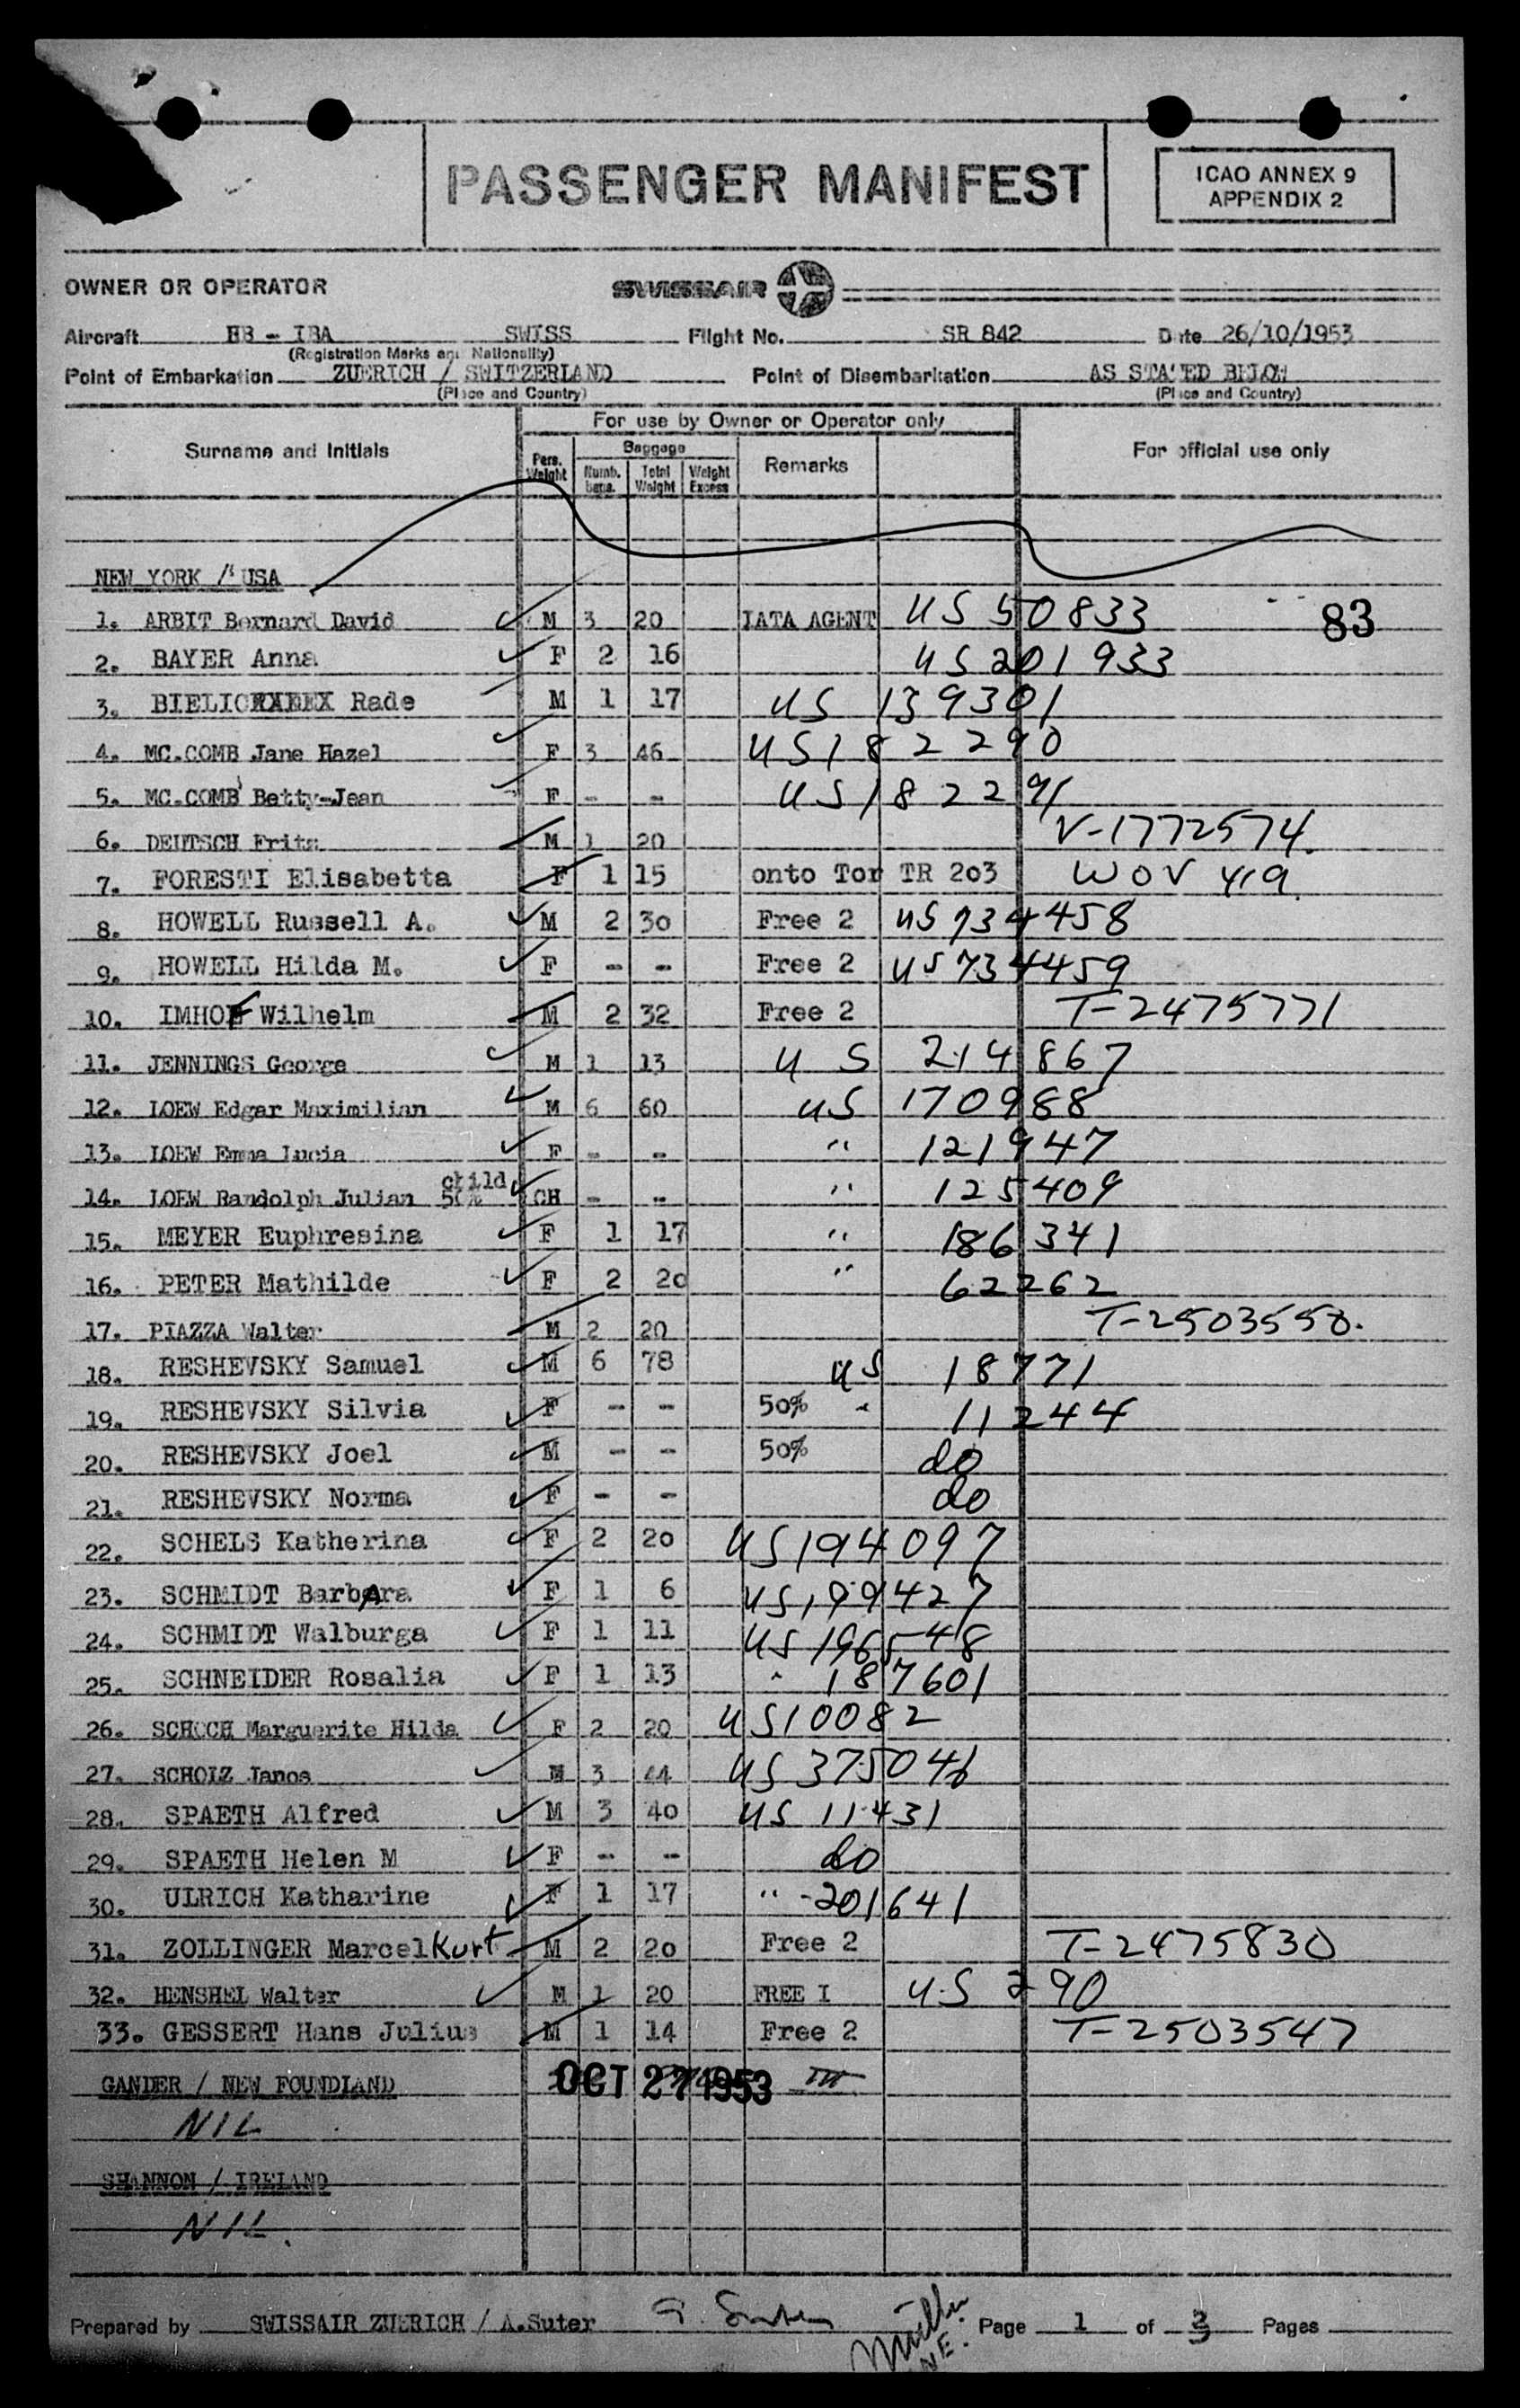 PASSENGER MANIFEST
ICAO ANNEX 9
APPENDIX 2
OWNER OR OPERATOR SWISSAIR
Aircraft HB - IBA SWISS Flight No. SR 842 Date 26/10/1953
(Registration Marks and Nationality)
Point of Embarkation ZUERICH / SWITZERLAND Point of Disembarkation AS STATED BELOW
(Place and Country) (Place and Country)
For use by Owner or Operator only
Surname and Initials Pers. Weight Baggage Numb. Total Weight Weight Excess Remarks For official use only
NEW YORK / USA
1. ARBIT Bernard David M 3 20 IATA AGENT US 50833 83
2. BAYER Anna F 2 16 US 201933
3. BIELIC Rade M 1 17 US 139301
4. MC.COMB Jane Hazel F 3 46 US 182290
5. MC.COMB Betty-Jean F - - US 182291
6. DEUTSCH Fritz M 1 20 V-1772574.
7. FORESTI Elisabetta F 1 15 onto Tor TR 203 WOV 419.
8. HOWELL Russell A. M 2 30 Free 2 US 734458
9. HOWELL Hilda M. F - - Free 2 US 734459
10. IMHOF Wilhelm M 2 32 Free 2 T-2475771
11. JENNINGS George M 1 13 US 214867
12. LOEW Edgar Maximilian M 6 60 US 170988
13. LOEW Emma Lucia F - - " 121947
14. LOEW Randolph Julian child 50% CH - - " 125409
15. MEYER Euphresina F 1 17 " 186341
16. PETER Mathilde F 2 20 " 62262
17. PIAZZA Walter M 2 20 T-2503558.
18. RESHEVSKY Samuel M 6 78 US 18771
19. RESHEVSKY Silvia F - - 50% " 11244
20. RESHEVSKY Joel M - - 50% do
21. RESHEVSKY Norma F - - do
22. SCHELS Katherina F 2 20 US 194097
23. SCHMIDT BarbAra F 1 6 US 199427
24. SCHMIDT Walburga F 1 11 US 196548
25. SCHNEIDER Rosalia F 1 13 " 187601
26. SCHOCH Marguerite Hilda F 2 20 US 10082
27. SCHOLZ Janos M 3 44 US 375046
28. SPAETH Alfred M 3 40 US 11431
29. SPAETH Helen M F - - do
30. ULRICH Katharine F 1 17 " -201641
31. ZOLLINGER Marcel Kurt M 2 20 Free 2 T-2475830
32. HENSHEL Walter M 1 20 FREE I US 290
33. GESSERT Hans Julius M 1 14 Free 2 T-2503547
GANDER / NEW FOUNDLAND OCT 27 1953
NIL
SHANNON / IRELAND
NIL.
Prepared by SWISSAIR ZUERICH / A.Suter Page 1 of 3 Pages